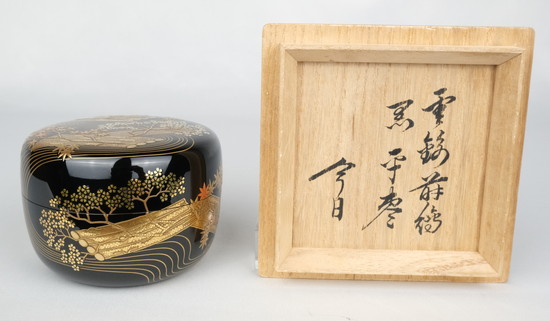 雲錦蒔繪
黒平棗
今日